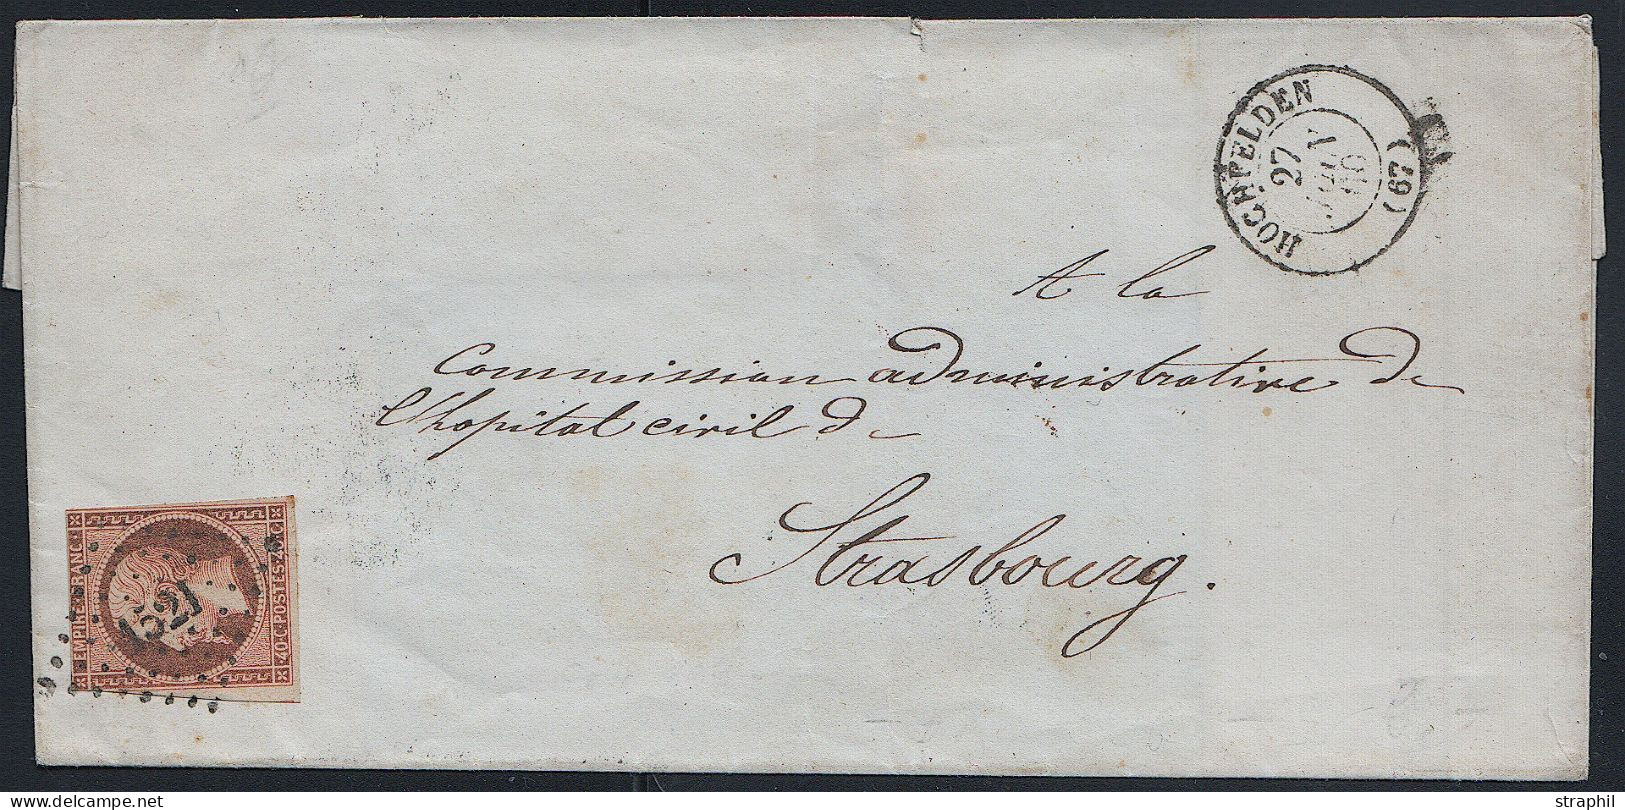 HOCHFELDEN
27
(67)
A la
Commission administrative de
l'hopital civil de
Strasbourg.
EMPIRE FRANC
1521
40 C POSTES 40 C
delcampe.net
straphil